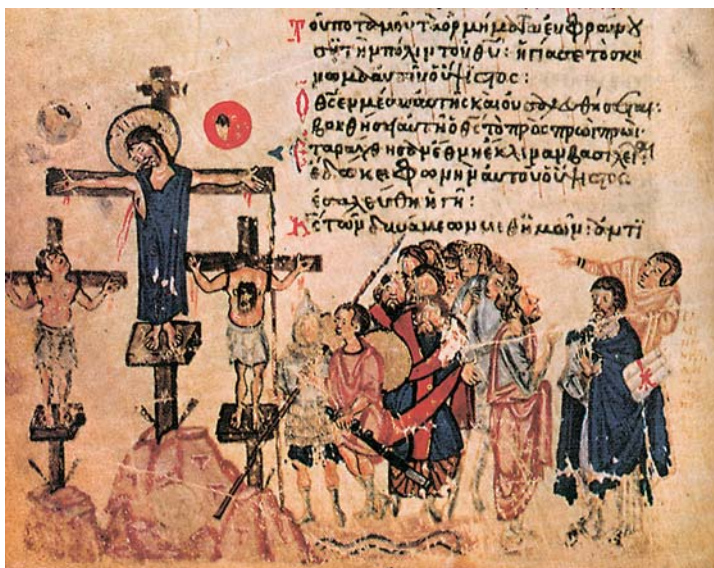 Τοῦ ποταμοῦ τὰ ὁρμήματα εὐφραίνου
σι τὴν πόλιν τοῦ θυ: ἡγίασε τὸ σκή
νωμα αὐτοῦ ὁ ὕψιστος:
Ὁ θς ἐν μέσω αὐτῆς καὶ οὐ σαλευθήσεται:
βοηθήσει αὐτῇ ὁ θς τὸ πρὸς πρωῒ πρωΐ·
Ἐταράχθησαν ἔθνη ἔκλιναν βασιλεῖαι
ἔδωκε φωνὴν αὐτοῦ ὁ ὕψιστος
ἐσαλεύθη ἡ γῆ:
Κς τῶν δυνάμεων μεθ ἡμῶν: ἀντι